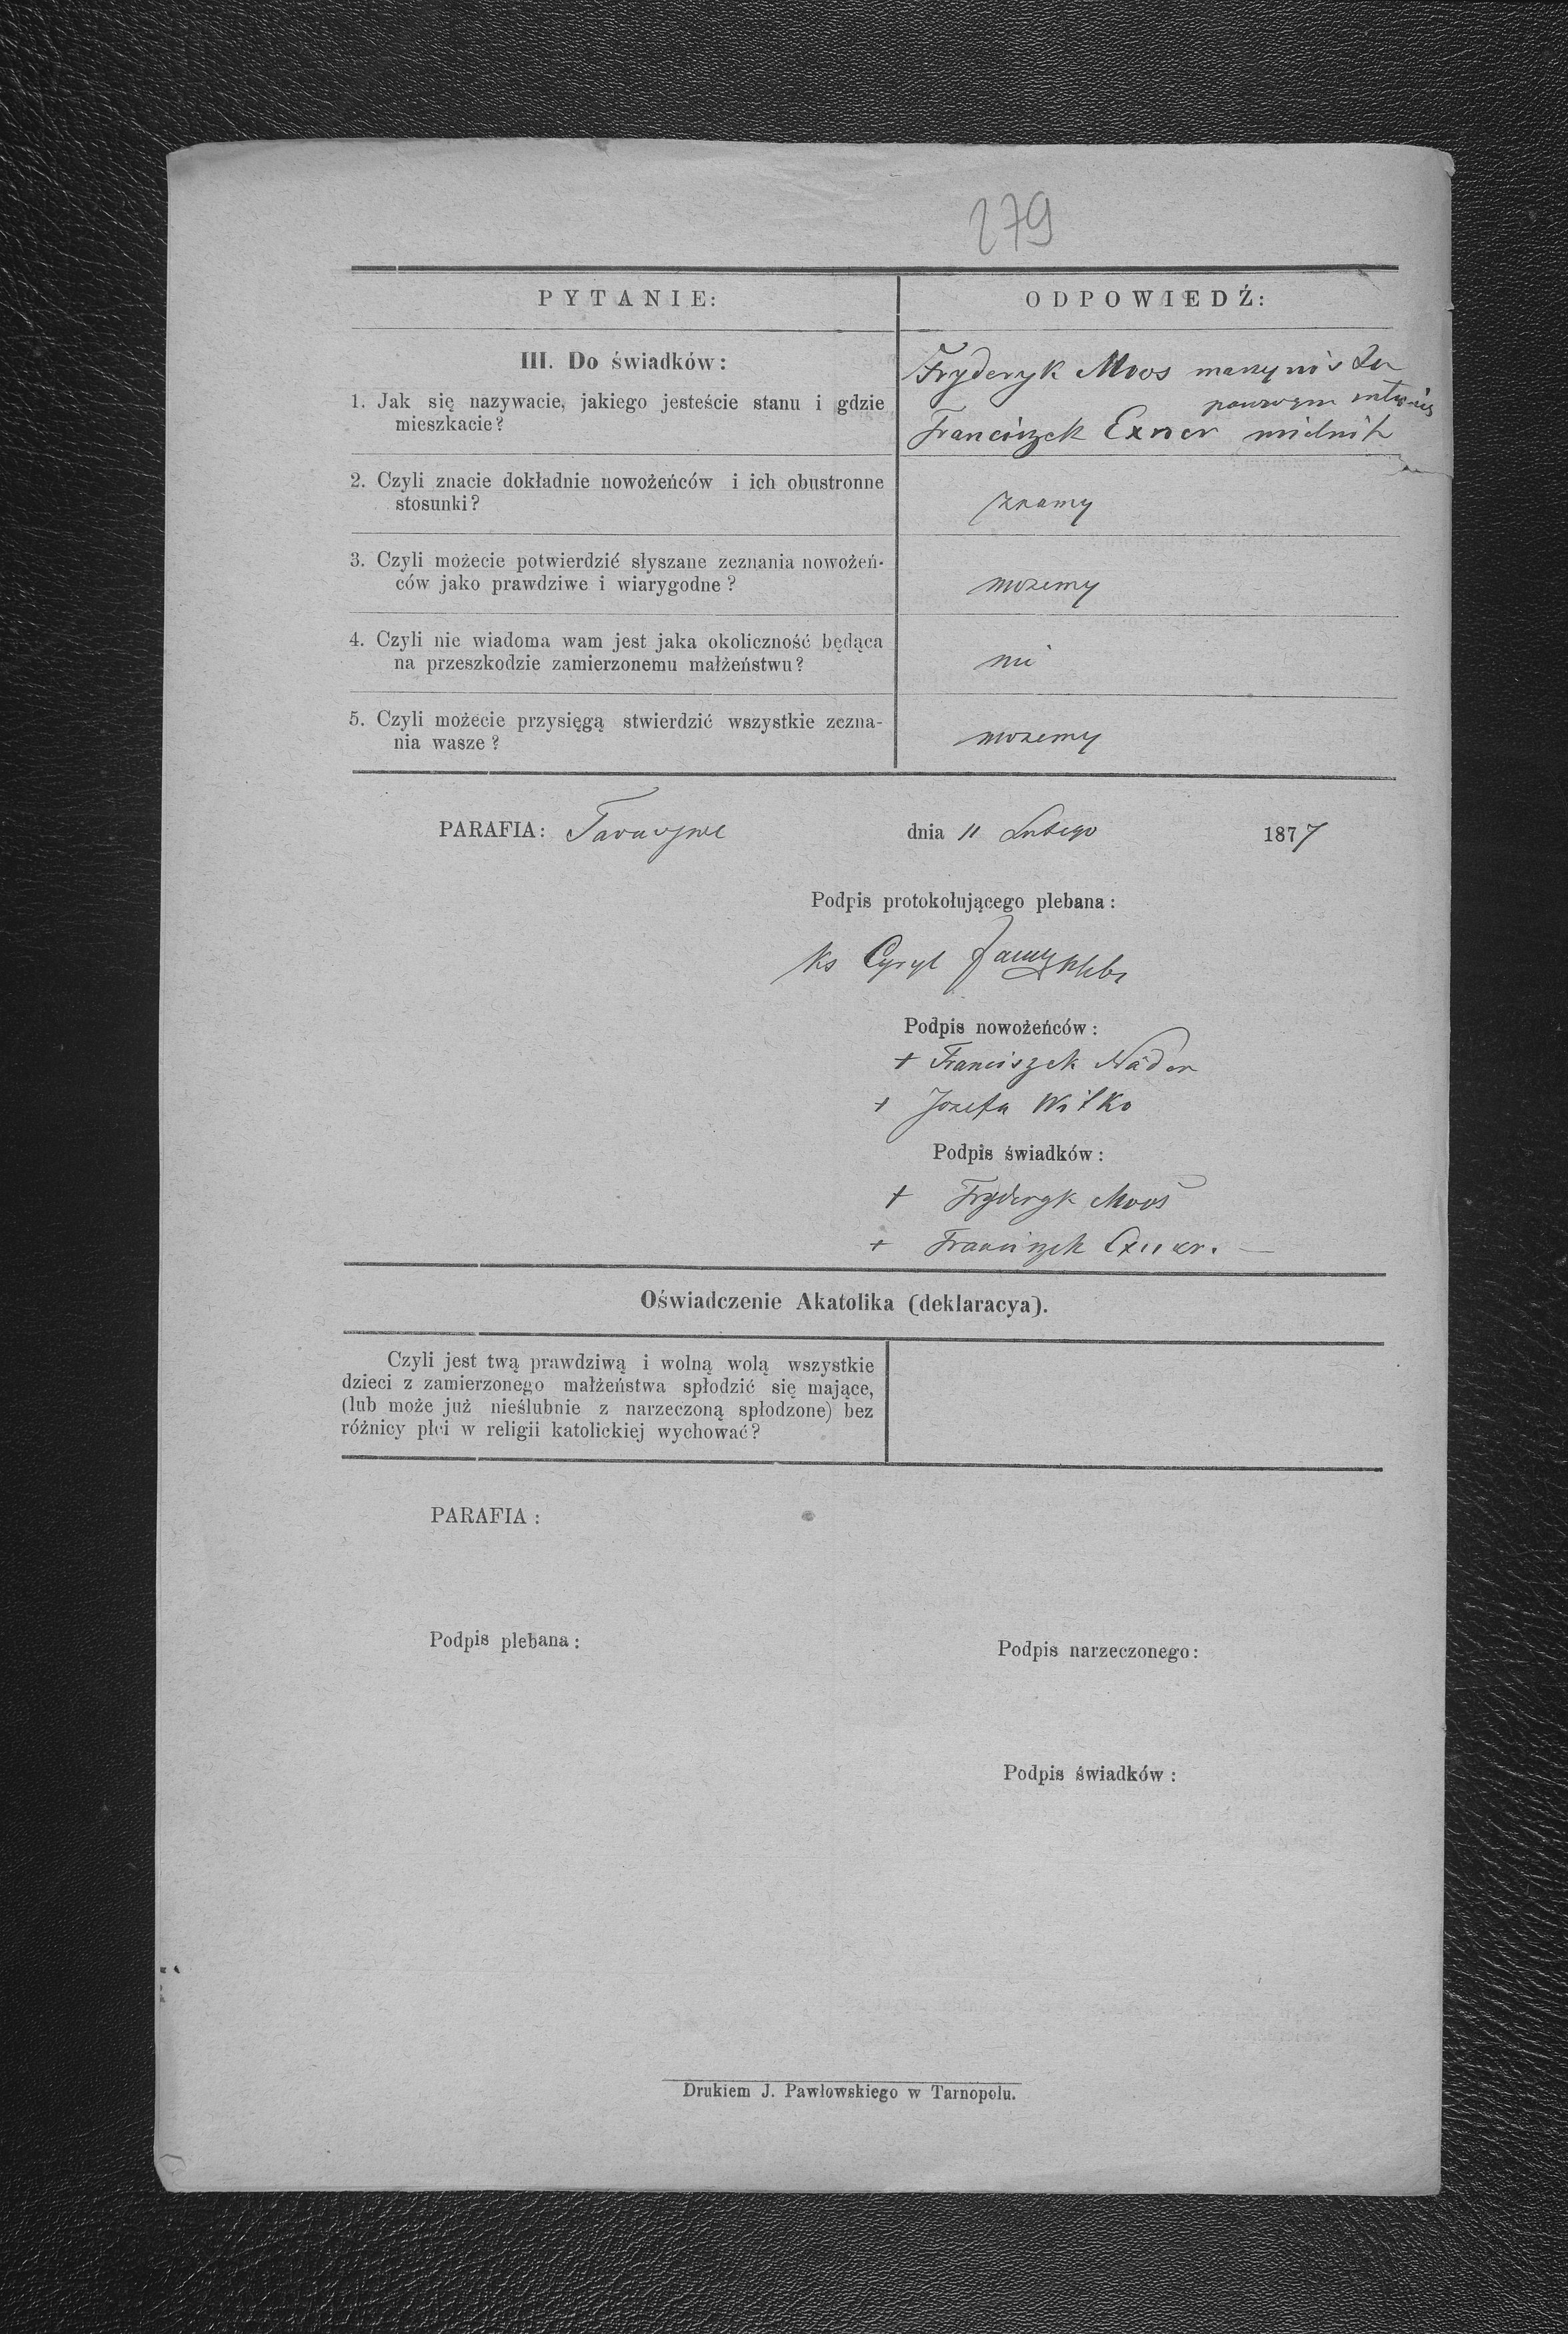 279
PYTANIE:
ODPOWIEDŹ:
III. Do świadków:
1. Jak się nazywacie, jakiego jesteście stanu i gdzie
mieszkacie?
Fryderyk Moos
Franciszek Exner mielnik
2. Czyli znacie dokładnie nowożeńców i ich obustronne
stosunki?
znamy
3. Czyli możecie potwierdzić słyszane zeznania nowożeń-
ców jako prawdziwe i wiarygodne?
mozemy
4. Czyli nie wiadoma wam jest jaka okoliczność będąca
na przeszkodzie zamierzonemu małżeństwu?
nie
5. Czyli możecie przysięgą stwierdzić wszystkie zezna-
nia wasze?
mozemy
PARAFIA:
dnia 11 Lutego 1877
Podpis protokołującego plebana:
Ks Cyryl
Podpis nowożeńców:
+ Franciszek Näder
+ Jozefa Witko
Podpis świadków:
+ Fryderyk Moos
+ Franciszek Exner.
Oświadczenie Akatolika (deklaracya).
Czyli jest twą prawdziwą i wolną wolą wszystkie
dzieci z zamierzonego małżeństwa spłodzić się mające,
(lub może już nieślubnie z narzeczoną spłodzone) bez
różnicy płci w religii katolickiej wychować?
PARAFIA:
Podpis plebana:
Podpis narzeczonego:
Podpis świadków:
Drukiem J. Pawłowskiego w Tarnopolu.